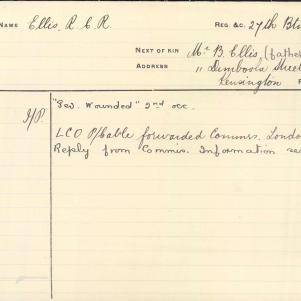 NAME Ellis, R. C. R. REG. &C. 27th Btn
NEXT OF KIN Mr B. Ellis, (father
ADDRESS 11 Dimboola Street
Kensington
"Sev. Wounded" 2nd occ.
LCO P/Cable forwarded Commrs. London
Reply from Commis. Information